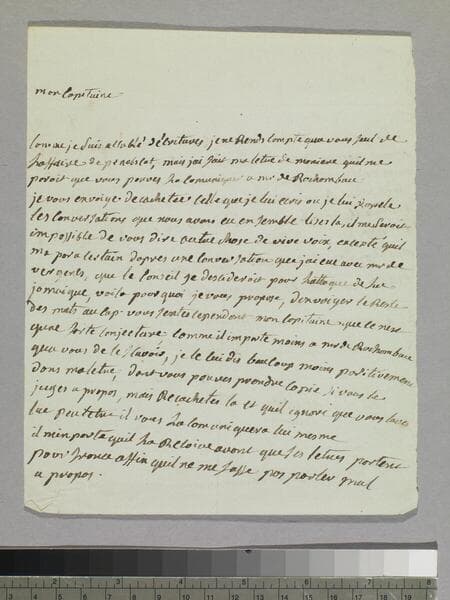 mon Capitaine
Comme je suis accablé d'écritures je ne Rends compte qua vous seul de
l'affaire de penobscot, mais jai fait ma letre de maniere quil ne
paroit que vous pouves la Comuniquer a mr de Rochambau
je vous envoÿe decachetée Celle que je lui ecris ou je lui parle
les Conversations que nous avons eu ensemble lises la, il me seroit
impossible de vous dire autre chose de vive voix, excepté quil
ma paru certain dapres une Conversation que jai eue avec mr de
vergenes, que le Conseil se decideroit pour lattaque de la
jamaique, voila pourquoi je vous propose, d'envoÿer le Reste
des mats au Cap. vous sentes cependant mon Capitaine que ce nest
qune forte Conjecture Comme il importe moins a mr de Rochambau
qua vous de le sçavoir, je le lui dis baucoup moins positivement
dans ma letre, dont vous pouves prendre Copie si vous le
juges a propos, mais Recachetes la et quil ignore que vous laves
lue peutetre il vous la Comuniquera lui meme
il mimporte quil la Recoive avant que ses letres partent
pour france affin quil ne me fasse pas parler mal
a propos.
1 2 3 4 5 6 7 8
1 2 3 4 5 6 7 8 9 10 11 12 13 14 15 16 17 18 19